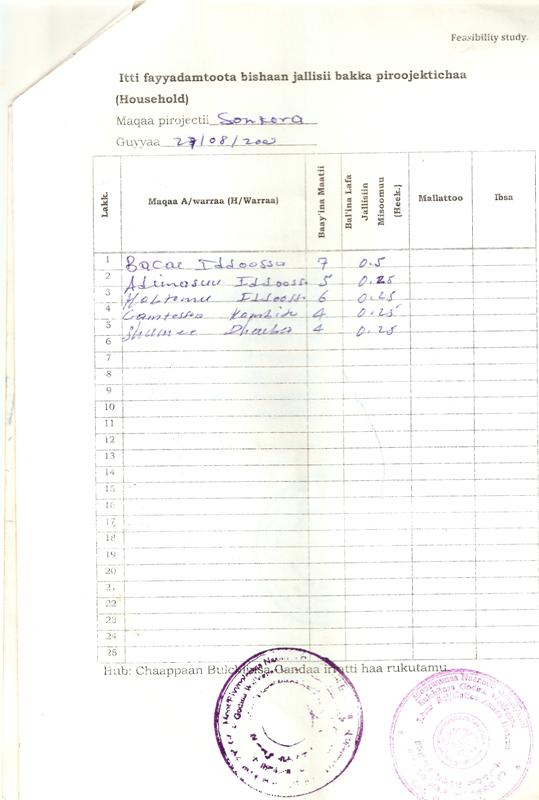 Feasibility study.
Itti fayyadamtoota bishaan jallisii bakka piroojektichaa
(Household)
Maqaa pirojectii Sonkora
Guyyaa 27/08/200
Lakk. Maqaa A/warraa (H/Warraa) Baay'ina Maatii Bal'ina Lafa Jallisiin Misoomuu (Heek.) Mallattoo Ibsa
1 Bacae Iddoossa 7 0.5
2 Adimasuu Iddooss 5 0.25
3 Habtamu Iddooss 6 0.25
4 Gamtessa 4 0.25
5 4 0.25
6
7
8
9
10
11
12
13
14
15
16
17
18
19
20
21
22
23
24
25
Hub: Chaappaan Bulchiinsa Gandaa irratti haa rukutamu.